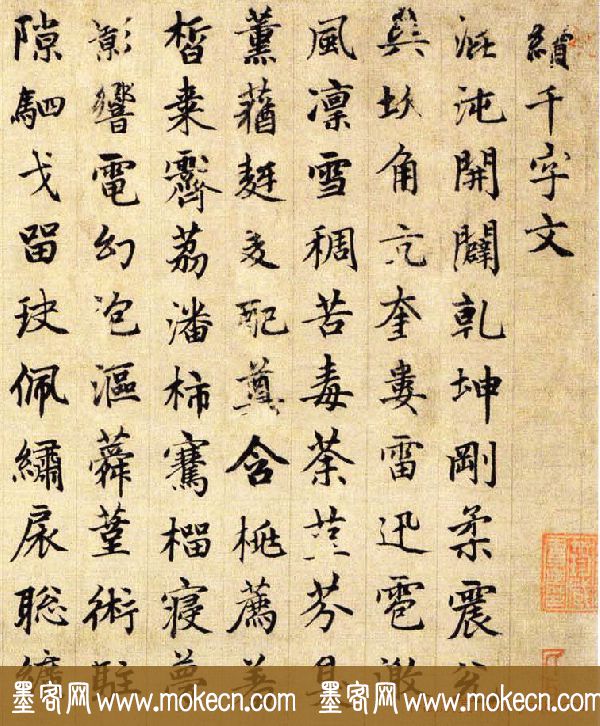 續千字文
混沌開闢乾坤剛柔震
巽坎角亢奎婁雷迅雹激
風凛雪稠苦毒荼芬臭
薰蕕麥配奠含桃薦羞
皙棗霽荔潘柿騫榴寢夢
影響電幻泡漚蕣菫術駐
隙駟戈留玦佩繡扆聡纊
墨客网 www.mokecn.com 墨客网 www.mokecn.com